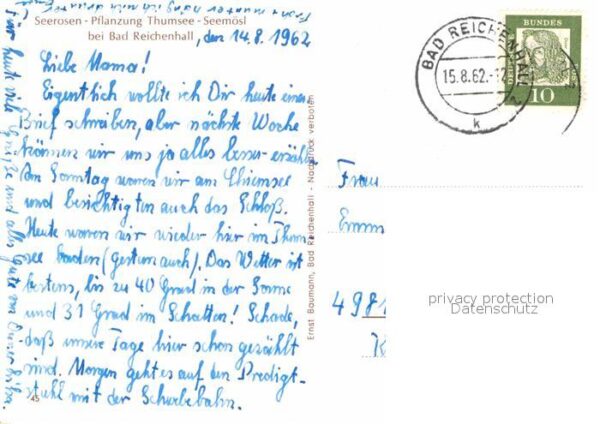 Seerosen - Pflanzung Thumsee - Seemösl
bei Bad Reichenhall, den 14.8.1962
Liebe Mama!
Eigentlich wollte ich Dir heute einen
Brief schreiben, aber nächste Woche
können wir uns ja alles besser erzählen
Am Sonntag waren wir am Chiemsee
und besichtigten auch das Schloß.
Heute waren wir wieder hier im Thum-
see baden (gestern auch). Das Wetter ist
bestens, bis zu 40 Grad in der Sonne
und 31 Grad im Schatten! Schade,
daß unsere Tage hier schon gezählt
sind. Morgen geht es auf den Predigt-
stuhl mit der Schwebebahn.
45
Für heute viele Grüße und alles Gute von
Ernst Baumann, Bad Reichenhall - Nachdruck verboten
BAD REICHENHALL
15.8.62.-12
k
2
BUNDES
10
Frau
Emm
498
K
privacy protection
Datenschutz